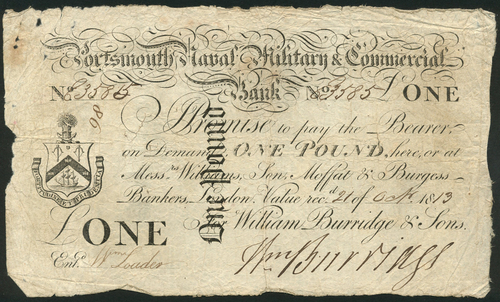 Portsmouth Naval Military & Commercial
Bank
No. 3585 No. 3585 £ONE
98
I Promise to pay the Bearer,
on Demand, ONE POUND, here, or at
Messrs. Williams, Son, Moffat & Burgess
Bankers, London. Value recd. 21 of Oct. 1813
For William Burridge & Sons.
One Pound
£ONE
Entd. Wm Loader
Wm Burridge